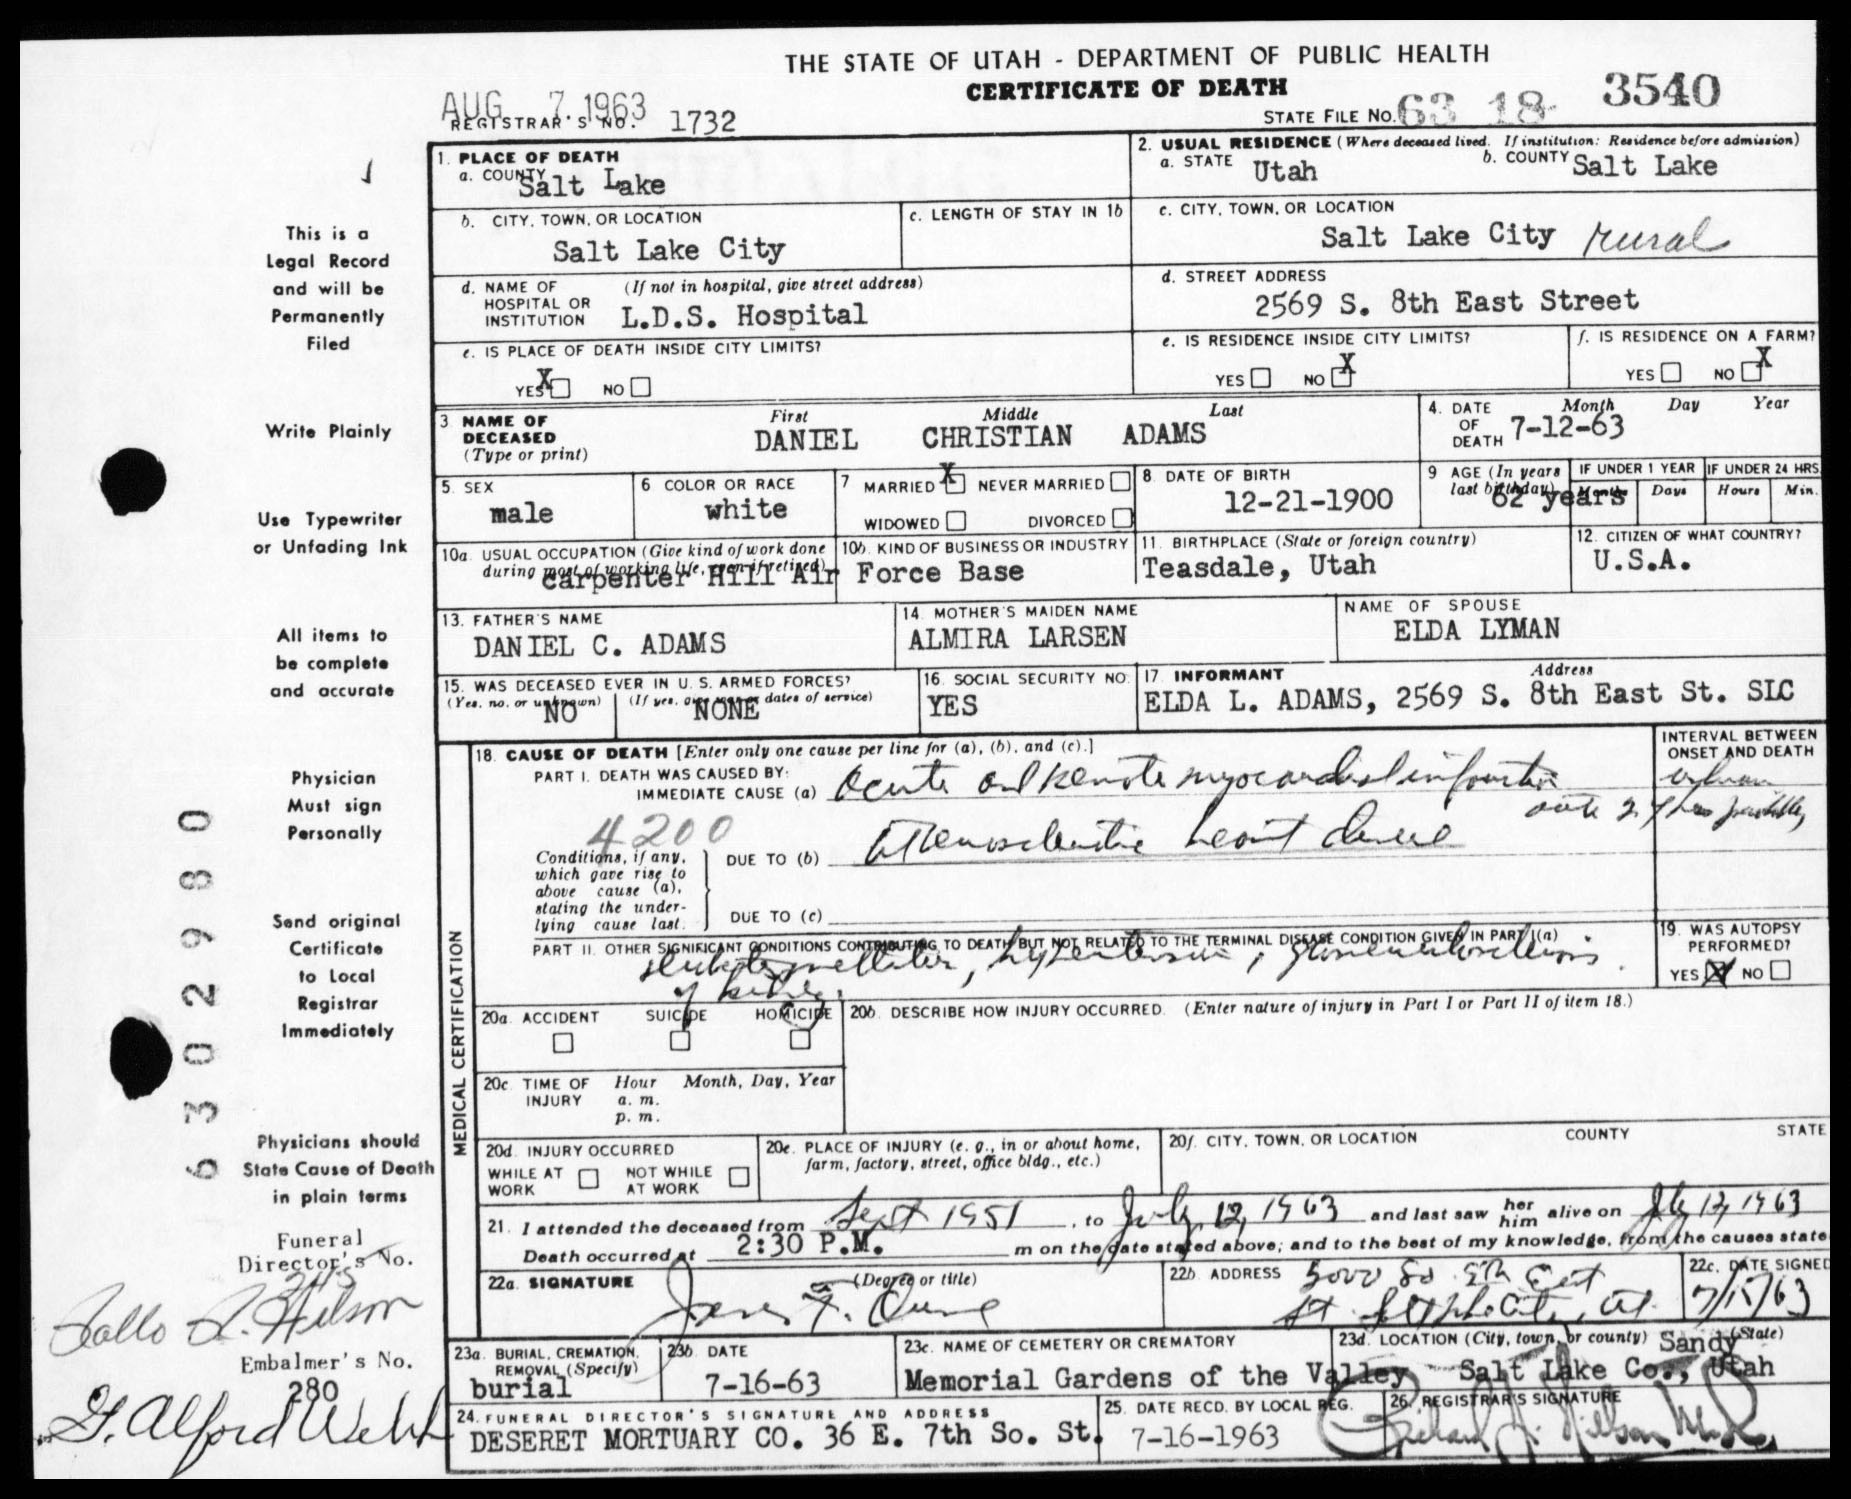 THE STATE OF UTAH - DEPARTMENT OF PUBLIC HEALTH
CERTIFICATE OF DEATH
AUG 7. 1963
REGISTRAR'S NO. 1732
STATE FILE NO. 63 18 3540
1. PLACE OF DEATH
a. COUNTY Salt Lake
2. USUAL RESIDENCE (Where deceased lived. If institution: Residence before admission)
a. STATE Utah b. COUNTY Salt Lake
b. CITY, TOWN, OR LOCATION
Salt Lake City
c. LENGTH OF STAY IN 1b
c. CITY, TOWN, OR LOCATION
Salt Lake City rural
d. NAME OF HOSPITAL OR INSTITUTION (If not in hospital, give street address)
L.D.S. Hospital
d. STREET ADDRESS
2569 S. 8th East Street
e. IS PLACE OF DEATH INSIDE CITY LIMITS?
YES X NO
e. IS RESIDENCE INSIDE CITY LIMITS?
YES NO X
f. IS RESIDENCE ON A FARM?
YES NO X
3 NAME OF DECEASED (Type or print)
First Middle Last
DANIEL CHRISTIAN ADAMS
4. DATE OF DEATH Month Day Year
7-12-63
5. SEX
male
6 COLOR OR RACE
white
7 MARRIED X NEVER MARRIED
WIDOWED DIVORCED
8 DATE OF BIRTH
12-21-1900
9 AGE (In years last birthday)
62 years
IF UNDER 1 YEAR
Months Days
IF UNDER 24 HRS.
Hours Min.
10a. USUAL OCCUPATION (Give kind of work done during most of working life, even if retired)
10b. KIND OF BUSINESS OR INDUSTRY
carpenter Hill Air Force Base
11. BIRTHPLACE (State or foreign country)
Teasdale, Utah
12. CITIZEN OF WHAT COUNTRY?
U.S.A.
13. FATHER'S NAME
DANIEL C. ADAMS
14. MOTHER'S MAIDEN NAME
ALMIRA LARSEN
NAME OF SPOUSE
ELDA LYMAN
15. WAS DECEASED EVER IN U. S. ARMED FORCES?
(Yes, no, or unknown) (If yes, give war or dates of service)
NO NONE
16. SOCIAL SECURITY NO.
YES
17. INFORMANT Address
ELDA L. ADAMS, 2569 S. 8th East St. SLC
MEDICAL CERTIFICATION
18. CAUSE OF DEATH [Enter only one cause per line for (a), (b), and (c).]
INTERVAL BETWEEN ONSET AND DEATH
PART I. DEATH WAS CAUSED BY:
IMMEDIATE CAUSE (a) Acute and remote myocardial infarction
4200
Conditions, if any, which gave rise to above cause (a), stating the underlying cause last.
DUE TO (b) heart disease
DUE TO (c)
PART II. OTHER SIGNIFICANT CONDITIONS CONTRIBUTING TO DEATH BUT NOT RELATED TO THE TERMINAL DISEASE CONDITION GIVEN IN PART I(a)
mellitus, hypertension,
of kidney.
19. WAS AUTOPSY PERFORMED?
YES X NO
20a. ACCIDENT SUICIDE HOMICIDE
20b. DESCRIBE HOW INJURY OCCURRED. (Enter nature of injury in Part I or Part II of item 18.)
20c. TIME OF INJURY Hour Month, Day, Year
a. m.
p. m.
20d. INJURY OCCURRED
WHILE AT WORK NOT WHILE AT WORK
20e. PLACE OF INJURY (e. g., in or about home, farm, factory, street, office bldg., etc.)
20f. CITY, TOWN, OR LOCATION COUNTY STATE
21. I attended the deceased from Sept 1951, to July 12, 1963 and last saw her him alive on July 12, 1963
Death occurred at 2:30 P.M. m on the date stated above; and to the best of my knowledge, from the causes state
22a. SIGNATURE (Degree or title)
22b. ADDRESS
22c. DATE SIGNED
7/15/63
23a. BURIAL, CREMATION, REMOVAL (Specify)
burial
23b. DATE
7-16-63
23c. NAME OF CEMETERY OR CREMATORY
Memorial Gardens of the Valley
23d. LOCATION (City, town, or county) (State)
Sandy
Salt Lake Co., Utah
24. FUNERAL DIRECTOR'S SIGNATURE AND ADDRESS
DESERET MORTUARY CO. 36 E. 7th So. St.
25. DATE RECD. BY LOCAL REG.
7-16-1963
26. REGISTRAR'S SIGNATURE
This is a
Legal Record
and will be
Permanently
Filed
Write Plainly
Use Typewriter
or Unfading Ink
All items to
be complete
and accurate
Physician
Must sign
Personally
Send original
Certificate
to Local
Registrar
Immediately
Physicians should
State Cause of Death
in plain terms
6302980
Funeral
Director's No.
Embalmer's No.
280
G. Alford Webb